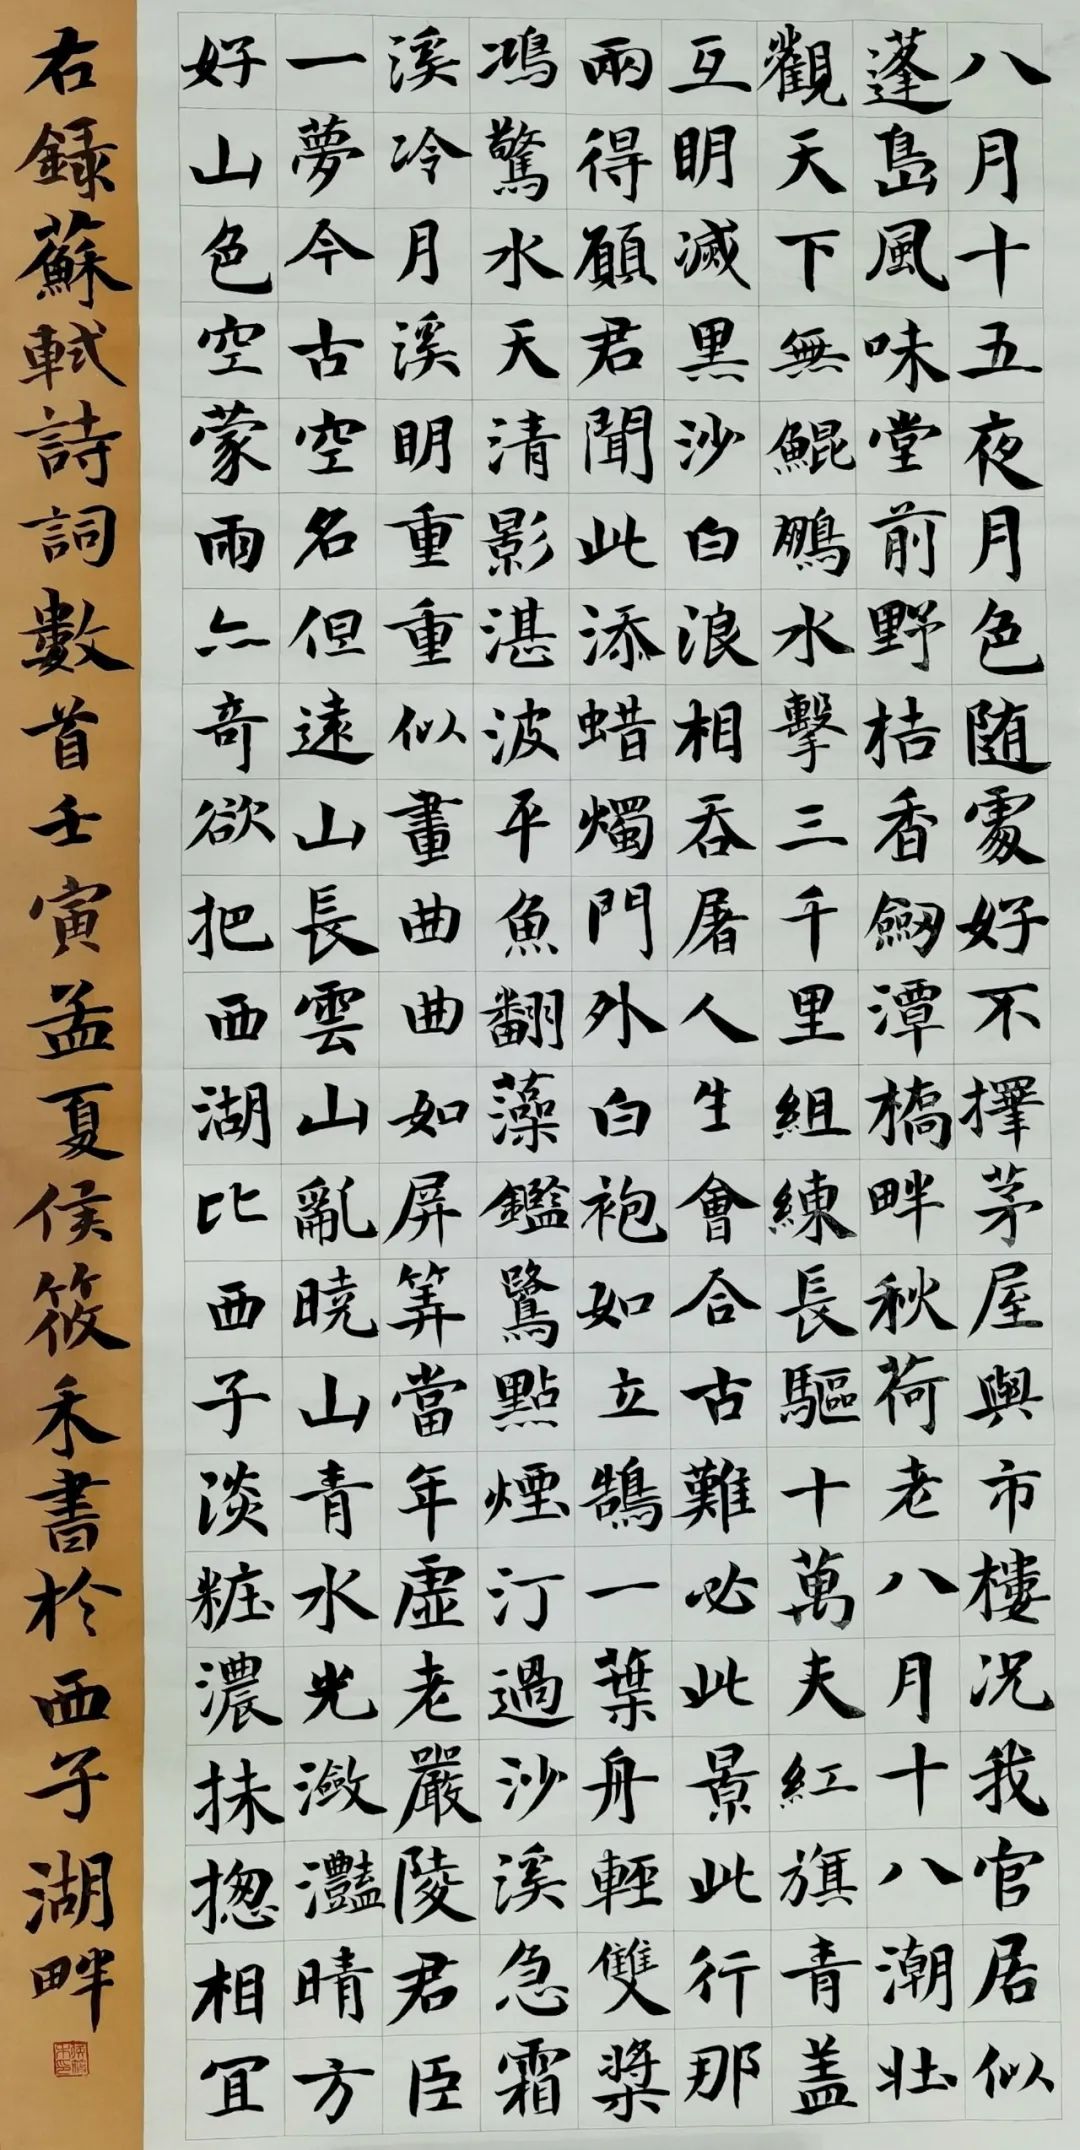 八月十五夜月色随處好不擇茅屋與市樓况我官居似
蓬島風味堂前野桔香劒潭橋畔秋荷老八月十八潮壯
觀天下無鯤鵬水擊三千里組練長驅十萬夫紅旗青盖
互明滅黑沙白浪相吞屠人生會合古難必此景此行那
兩得願君聞此添蜡燭門外白袍如立鵠一葉舟輕雙槳
鴻驚水天清影湛波平魚翻藻鑑鷺點煙汀過沙溪急霜
溪冷月溪明重重似畫曲曲如屏筭當年虛老嚴陵君臣
一夢今古空名但遠山長雲山亂曉山青水光瀲灩晴方
好山色空蒙雨亦奇欲把西湖比西子淡粧濃抹揔相宜
右録蘇軾詩詞數首壬寅孟夏侯筱禾書於西子湖畔